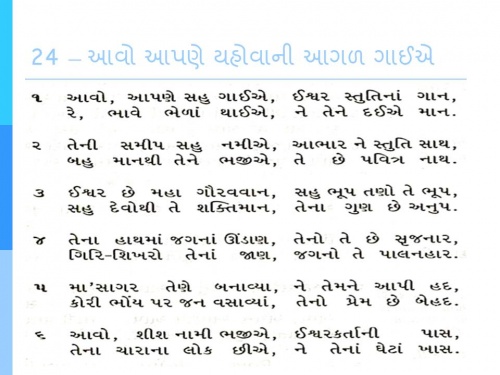 24 – આવો આપણે યહોવાની આગળ ગાઈએ
૧ આવો, આપણે સહુ ગાઈએ, ઈશ્વર સ્તુતિનાં ગાન,
રે, ભાવે ભેળાં થાઈએ, ને તેને દઈએ માન.
૨ તેની સમીપ સહુ નમીએ, આભાર ને સ્તુતિ સાથ,
બહુ માનથી તેને ભજીએ, તે છે પવિત્ર નાથ.
૩ ઈશ્વર છે મહા ગૌરવવાન, સહુ ભૂપ તણો તે ભૂપ,
સહુ દેવોથી તે શક્તિમાન, તેના ગુણ છે અનુપ.
૪ તેના હાથમાં જગનાં ઊંડાણ, તેનો તે છે સૃજનાર,
ગિરિ-શિખરો તેનાં જાણ, જગનો તે પાલનહાર.
૫ મા'સાગર તેણે બનાવ્યા, ને તેમને આપી હદ,
કોરી ભોંય પર જન વસાવ્યાં, તેનો પ્રેમ છે બેહદ.
૬ આવો, શીશ નામી ભજીએ, ઈશ્વરકર્તાની પાસ,
તેના ચારાના લોક છીએ, ને તેનાં ઘેટાં ખાસ.